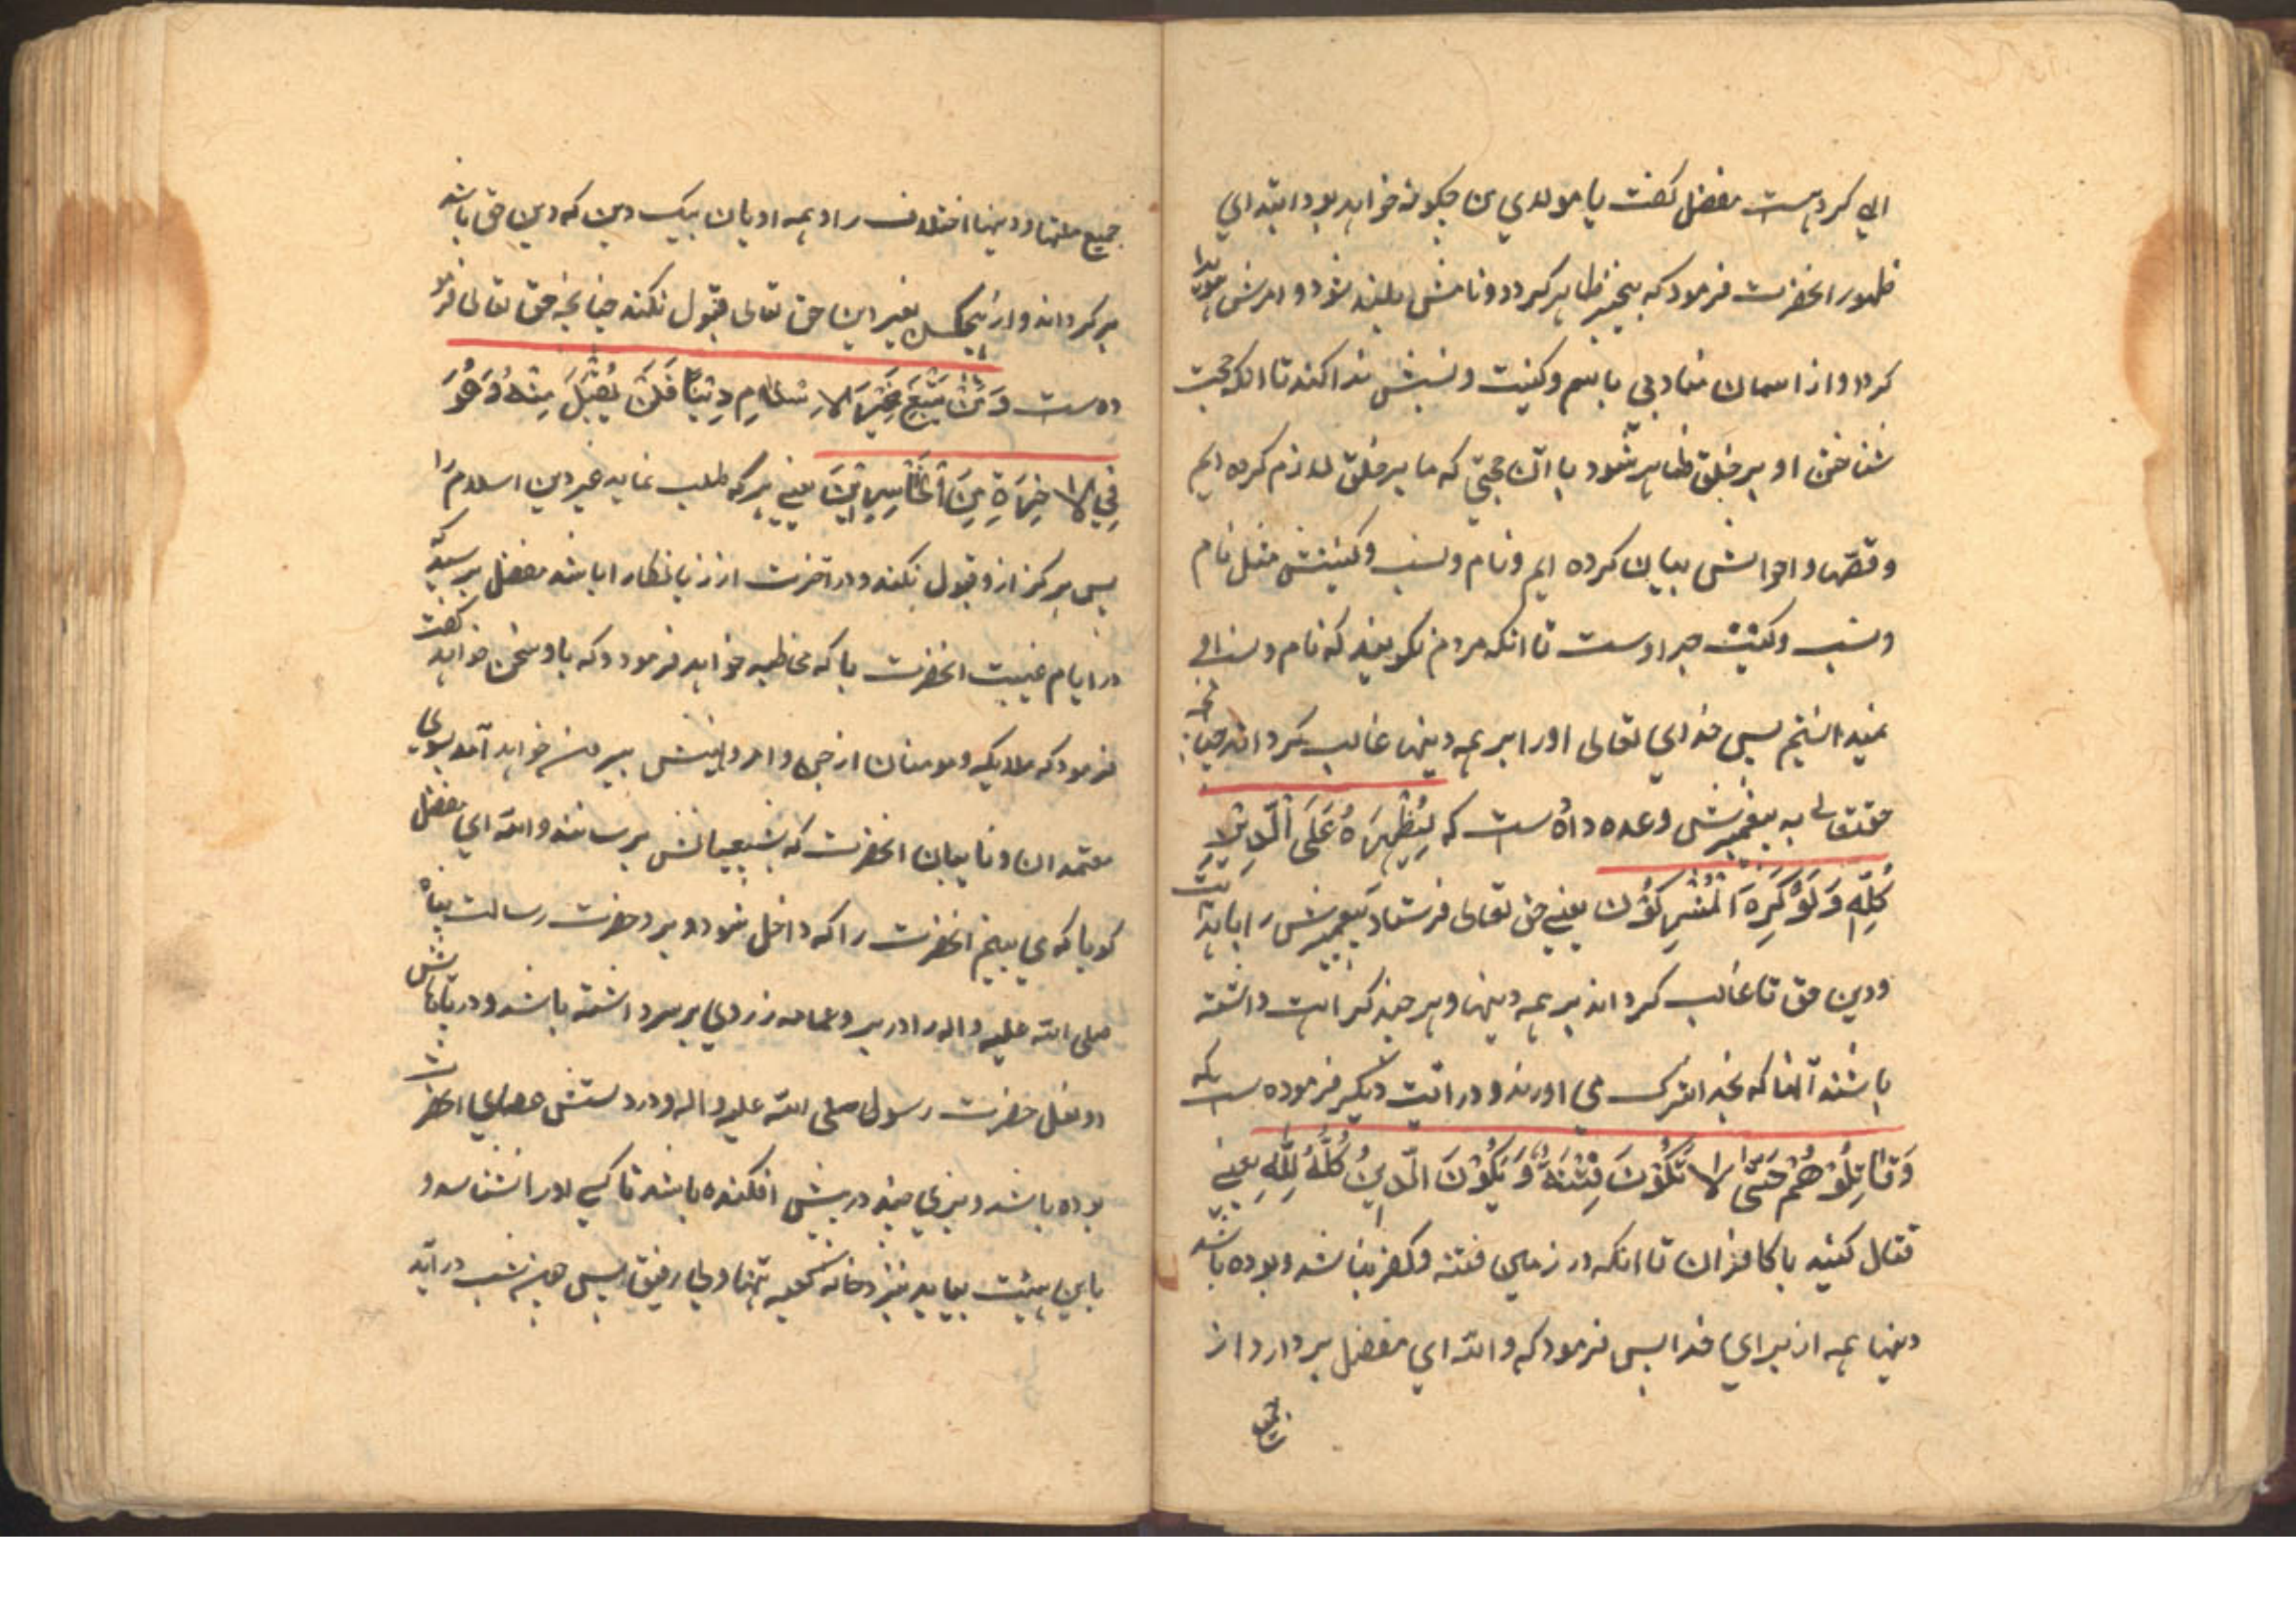 الهی کرده است مفضل گفت یا مولای من چگونه خواهد بود ابتدای
ظهور انحضرت فرمود که بیخبر ظاهر گردد و نامش بلند شود و امرش هویدا
گردد و از اسمان منادی باسم و کنیت و نسبش ندا کند تا انکه حجت
شناختن او بر خلق ظاهر شود با ان حجتی که ما بر خلق لازم کرده ایم
و قصّها و احوالش بیان کرده ایم و نام و نسب و کنیتش مثل نام
و نسب و کنیت جد اوست تا انکه مردم نکویند که نام و نسب او
نمیدانستیم پس خدای تعالی او را بر همه دینها غالب گرداند چنانچه
حقتعالی به پیغمبرش وعده داده است که لِيُظْهِرَهُ عَلَى الدِّينِ
كُلِّهِ وَلَوْ كَرِهَ الْمُشْرِكُونَ یعنی حق تعالی فرستاد پیغمبرش را باهدایت
و دین حق تا غالب گرداند بر همه دینها و هر چند کراهت داشته
باشند آنها که بخدا شرک می اورند و در ایت دیگر فرموده است که
وَقَاتِلُوهُمْ حَتَّى لَا تَكُونَ فِتْنَةٌ وَيَكُونَ الدِّينُ كُلُّهُ لِلَّهِ یعنی
قتال کنید با کافران تا انکه در زمین فتنه و کفر نباشد و بوده باشد
دینها همه از برای خدا پس فرمود که والله ای مفضل بردارد از
جمیع
جمیع ملتها و دینها اختلاف را و همه ادیان بیک دین که دین حق باشد
برگرداند و از هیچکس بغیر این حق تعالی قبول نکند چنانچه حق تعالی فرمو
ده ست وَمَنْ يَبْتَغِ غَيْرَ الْإِسْلَامِ دِينًا فَلَنْ يُقْبَلَ مِنْهُ وَهُوَ
فِي الْآخِرَةِ مِنَ الْخَاسِرِينَ یعنی هر که طلب نماید غیر دین اسلام را
پس هرگز از و قبول نکند و در آخرت از زیانکاران باشد مفضل پرسید که
در ایام غیبت انحضرت با که مخاطبه خواهد فرمود و که با و سخن خواهد گفت
فرمود که ملایکه و مومنان از جن و امر و نهیش بیرون خواهد آمد بسوی
معتمدان و نایبان انحضرت که بشیعیانش برسانند والله ای مفضل
کویا که می بینم انحضرت را که داخل شود و برد حضرت رسالت پناه
صلی الله علیه واله را در بر و عمامه زردی بر سر داشته باشد و در پاهاش
دو نعل حضرت رسول صلی الله علیه واله و در دستش عصای انحضرت
بوده باشد و بزی چند در پیش افکنده باشد تا کسی او را نشناسد و
باین هیئت بیاید بنزد خانه کعبه تنها و بی رفیق پس چون شب در آید